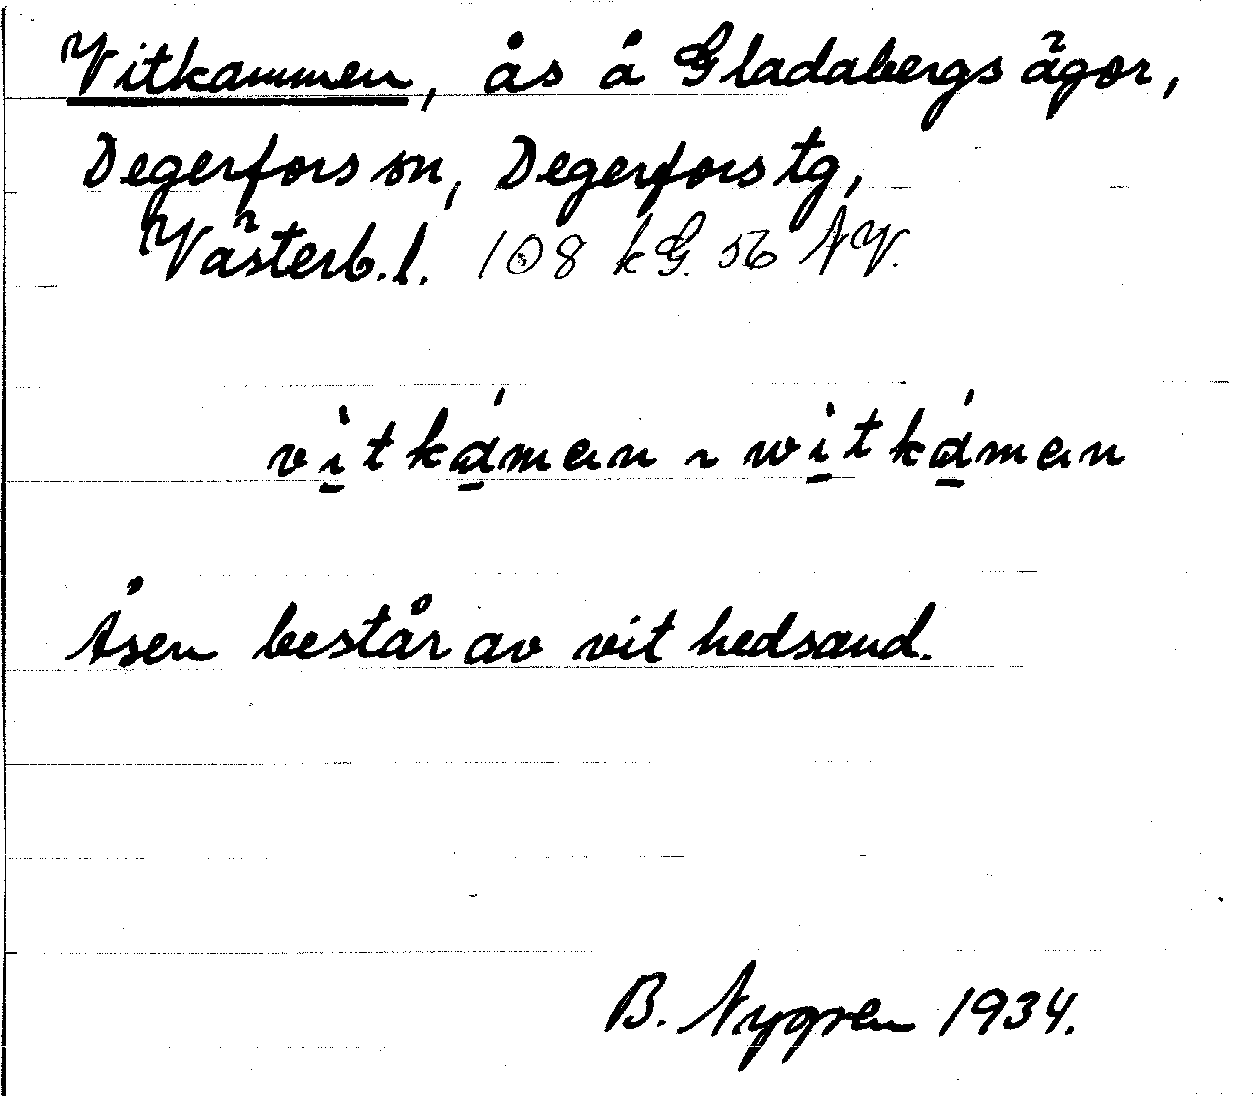 Vitkammen, ås å Gladabergs ägor,
Degerfors sn, Degerfors tg,
Västerb. l. 108 kG. 56 NV.
vìtkámən ~ wìtkámən
Åsen består av vit hedsand.
B. Nygren 1934.